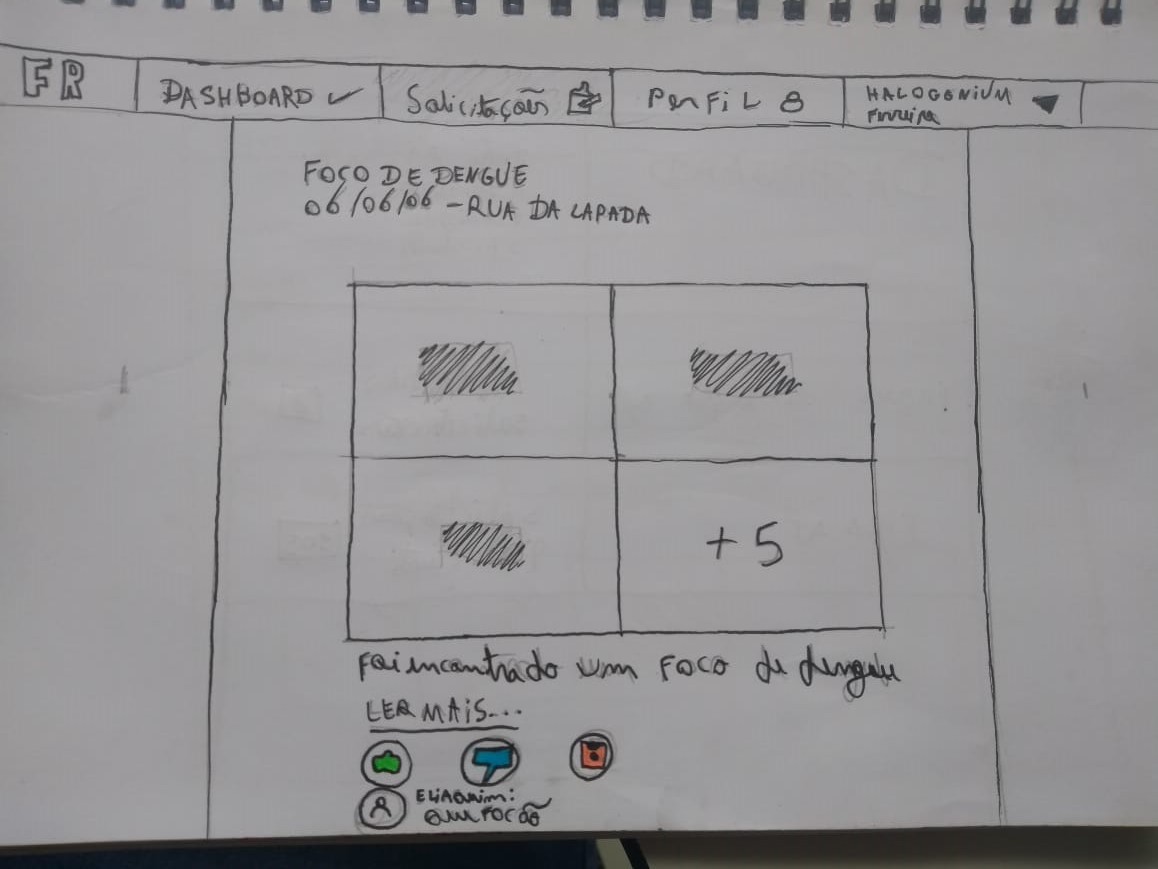 FR
DASHBOARD
Solicitações
PERFiL
HALOGONIUM
Ferreira
FOÇO DE DENGUE
06/06/06 - RUA DA LAPADA
+5
Foi encontrado um FOCO de dengue
LER MAiS...
ELIAQUIM:
QUE FOCÃO